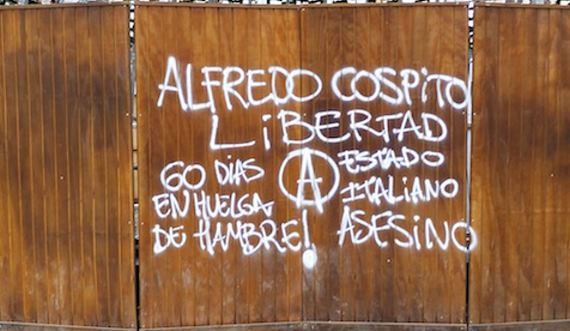 ALFREDO COSPITO
LiBERTAD
60 DiAS
EN HUELGA
DE HAMBRE!
A
ESTADO
ITALIANO
ASESiNO